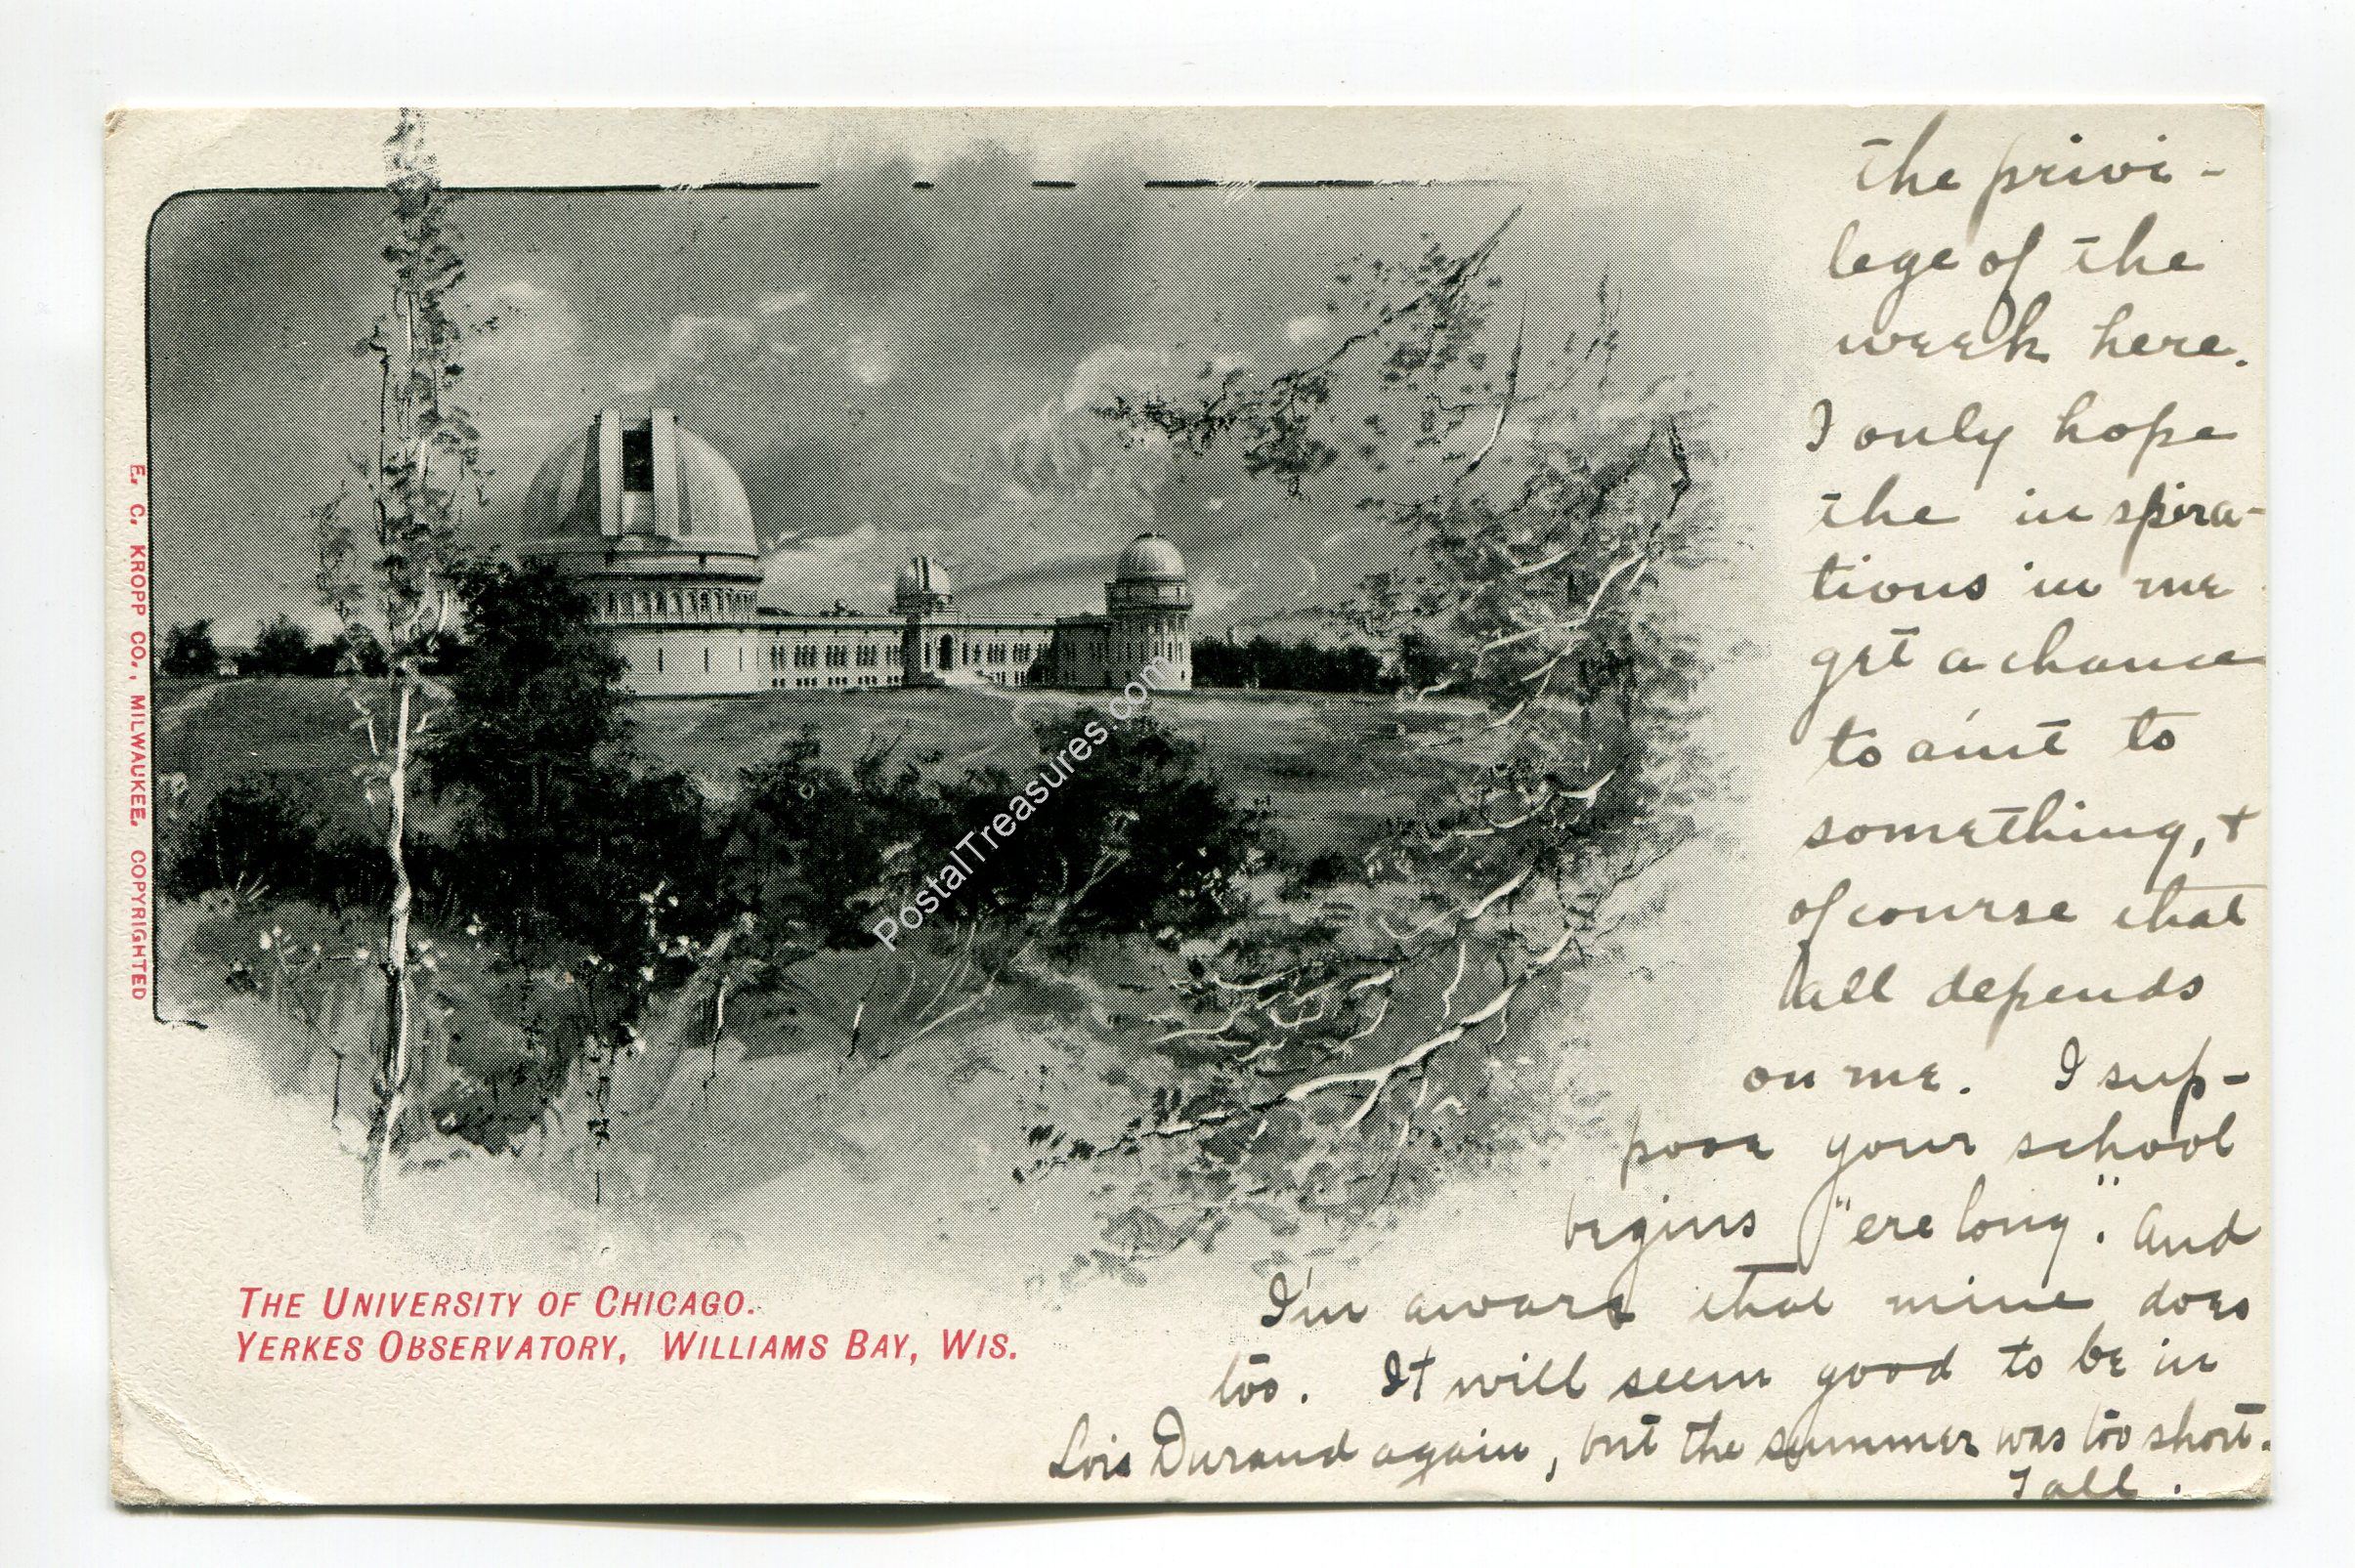 the privi-
lege of the
week here.
I only hope
the inspira-
tions in me
get a chance
to amt to
something, +
of course that
all depends
on me. I sup-
pose your school
begins "ere long". And
I'm aware that mine does
too. It will seem good to be in
Lois Durand again, but the summer was too short.
THE UNIVERSITY OF CHICAGO.
YERKES OBSERVATORY, WILLIAMS BAY, WIS.
E. C. KROPP CO., MILWAUKEE. COPYRIGHTED
PostalTreasures.com